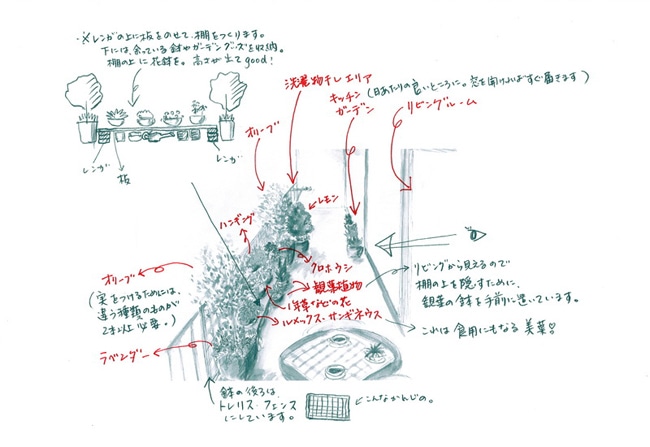 ※レンガの上に板をのせて、棚をつくります。
下には、余っている鉢やガーデングッズを収納。
棚の上に花鉢を。高さが出てgood!
レンガ
板
レンガ
洗濯物干しエリア
キッチン
ガーデン
(日あたりの良いところに。窓を開ければすぐ届きます)
リビングルーム
オリーブ
レモン
ハンギング
クロホウシ
観葉植物
1年草などの花
ルメックス・サンギネウス
オリーブ
(実をつけるためには、
違う種類のものが
2本以上必要。)
ラベンダー
リビングから見えるので
棚の上を隠すために、
観葉の鉢を手前に置いています。
これは食用にもなる美葉♡
鉢の後ろは、
トレリスフェンス
にしています。
こんなかんじの。